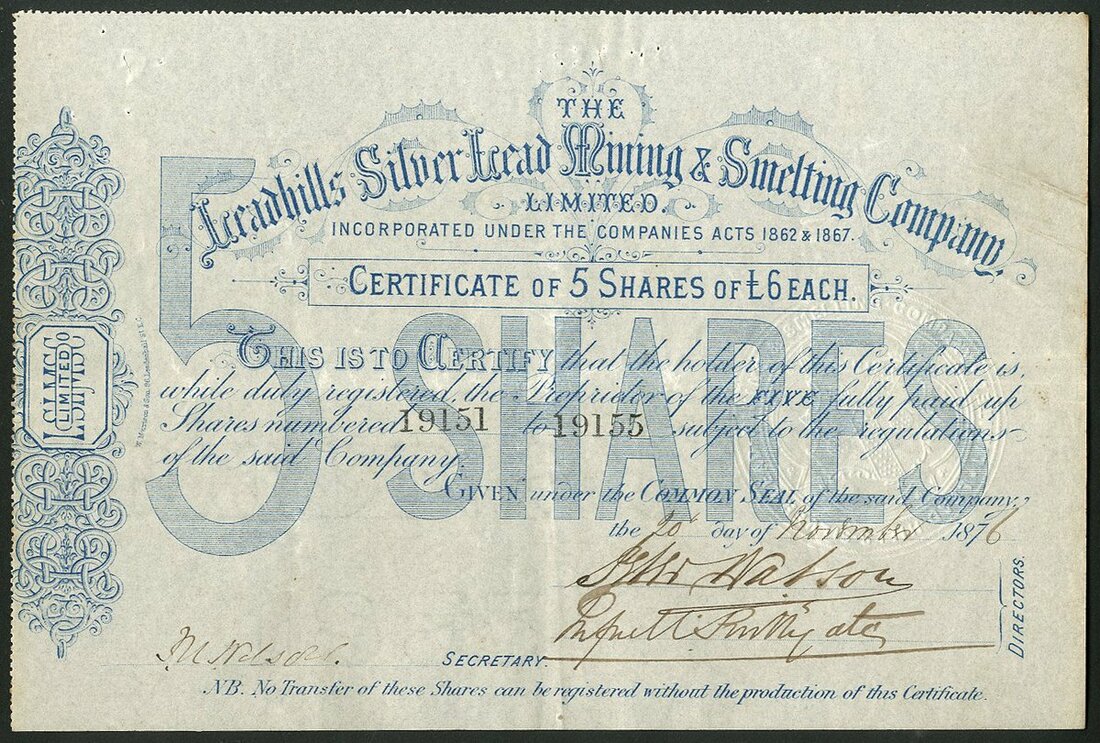 THE
Leadhills Silver Lead Mining & Smelting Company,
LIMITED.
INCORPORATED UNDER THE COMPANIES ACTS 1862 & 1867.
CERTIFICATE OF 5 SHARES OF £6 EACH.
5 SHARES
THIS IS TO CERTIFY that the holder of this Certificate is,
while duly registered, the Proprietor of the FIVE fully paid up
Shares numbered 19151 to 19155 subject to the regulations
of the said Company.
GIVEN under the COMMON SEAL of the said Company,
the 20 day of November 1876
Peter Watson
DIRECTORS.
SECRETARY.
NB. No Transfer of these Shares can be registered without the production of this Certificate.
LIMITED